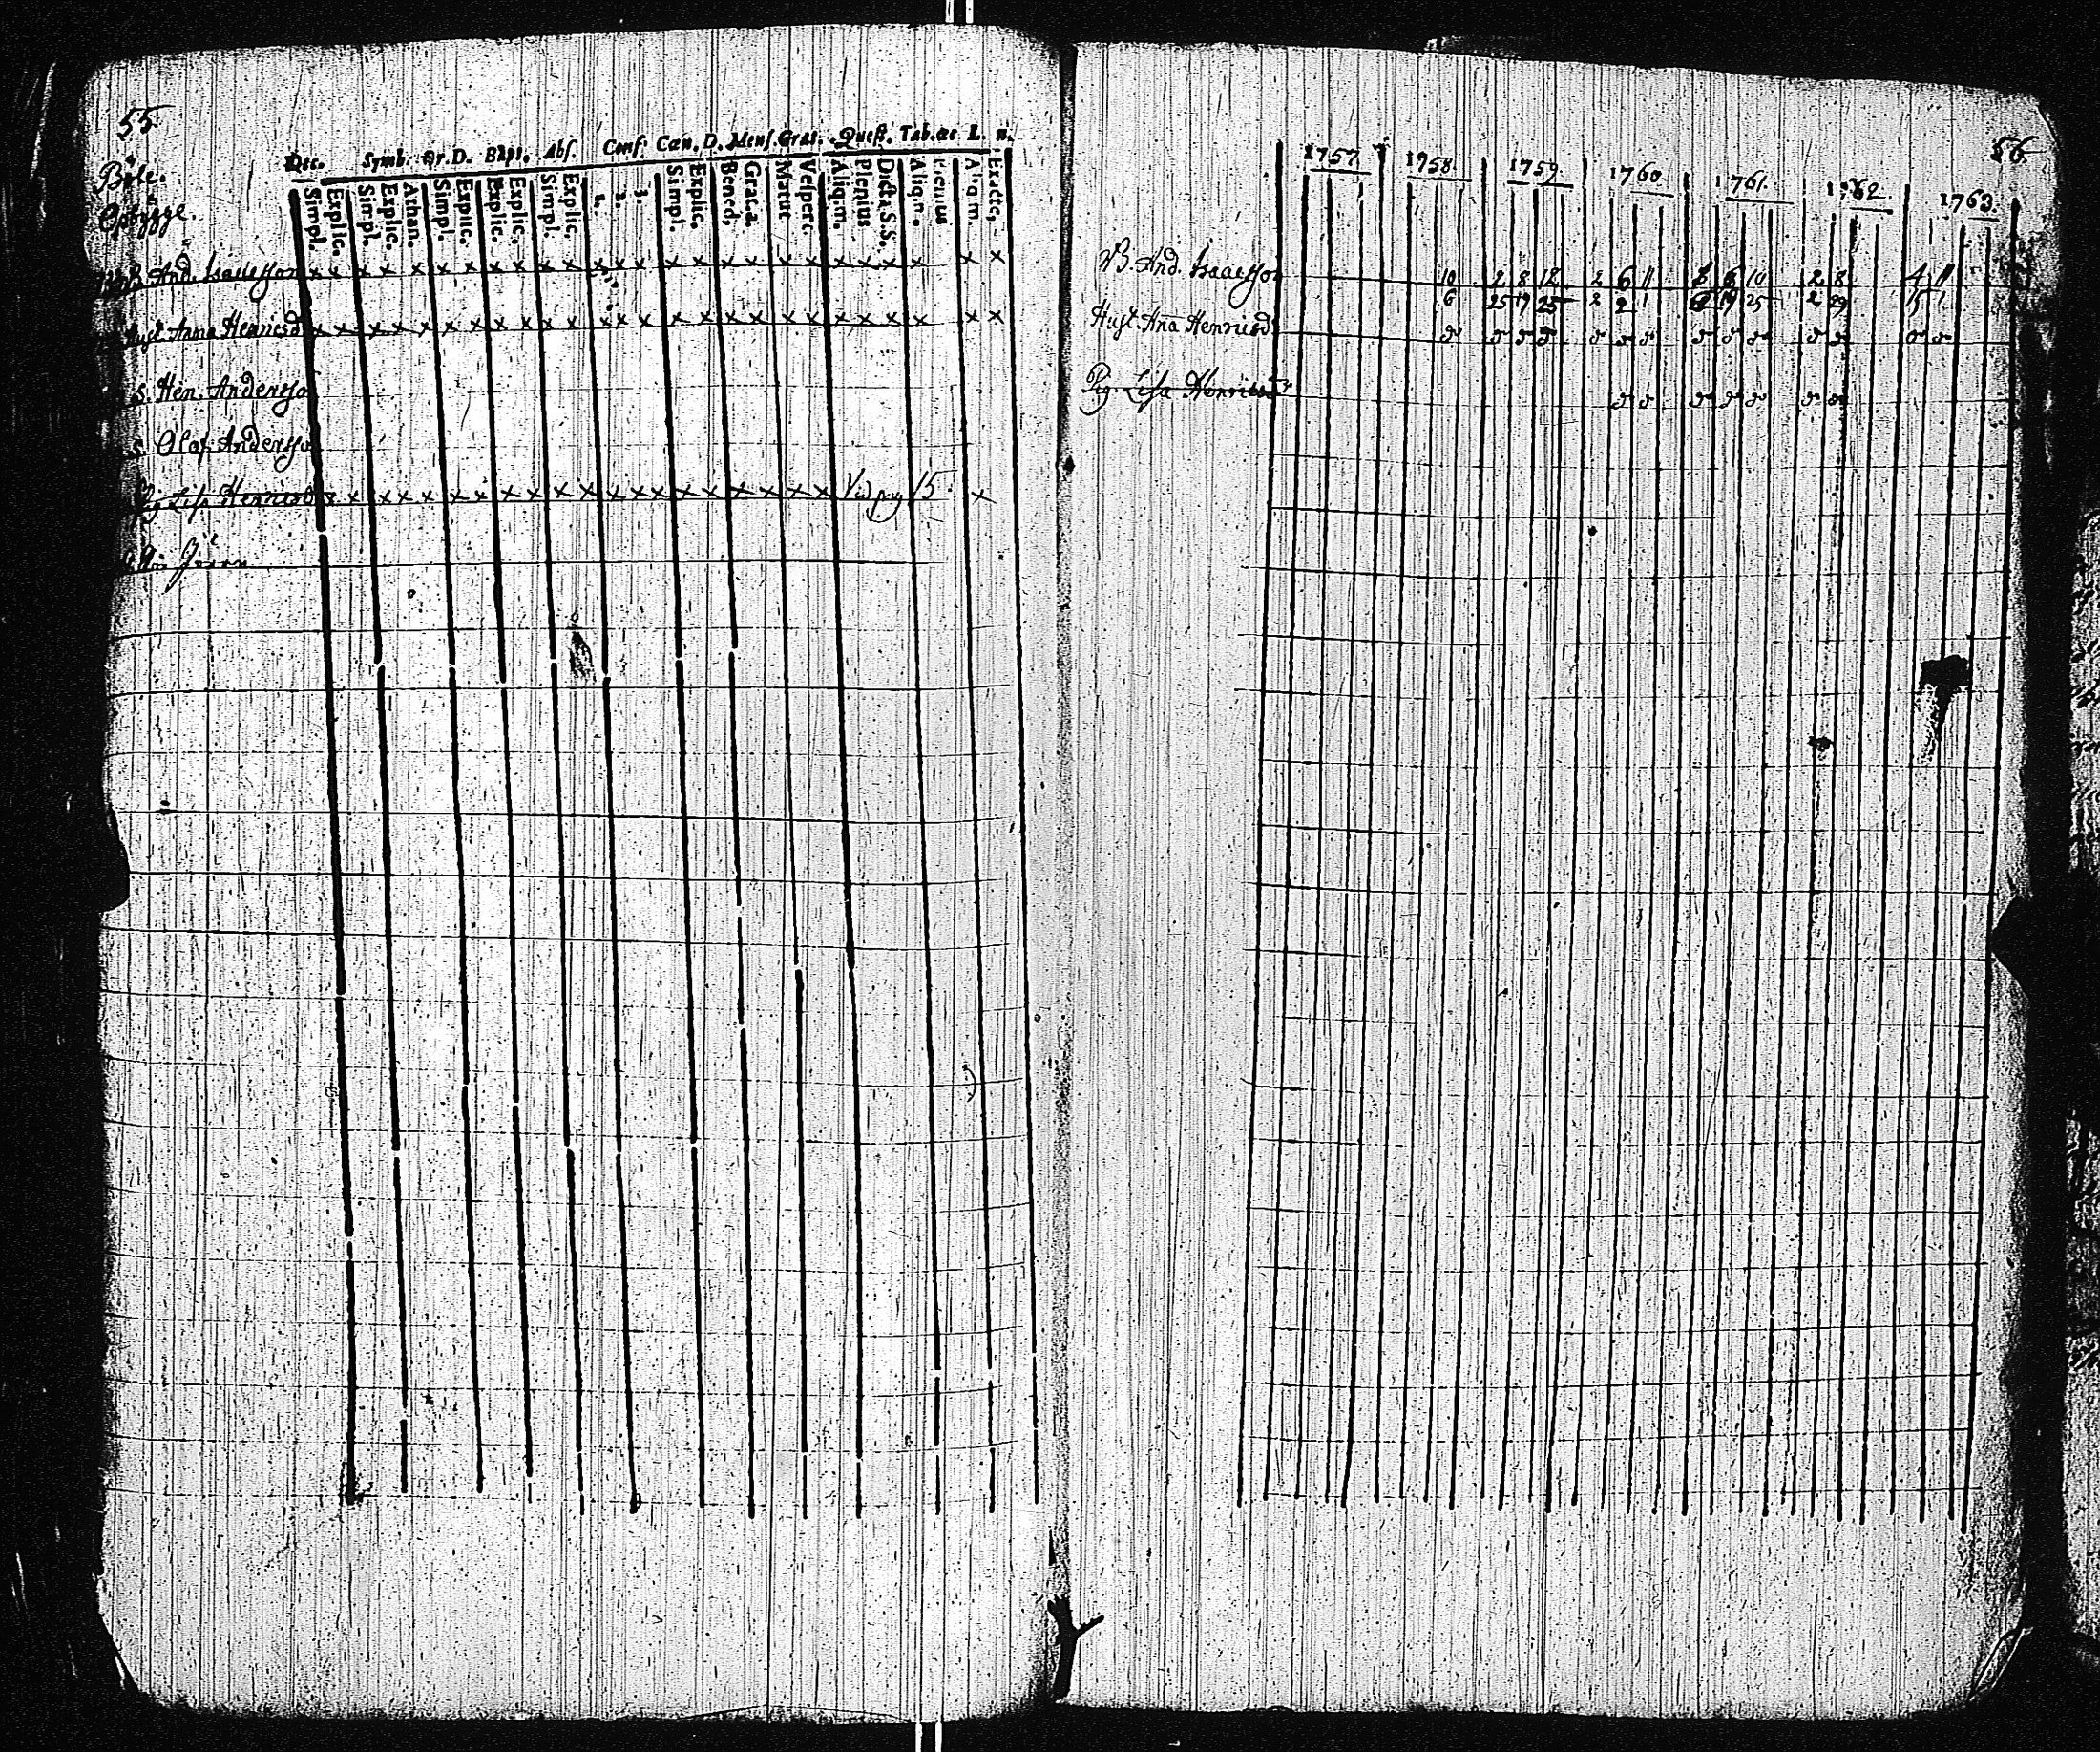 55
Böle.
Dec. Symb. Or. D. Bapt. Abs. Conf. Cœn. D. Mens. Grat. Quest. Tab. œc L. n.
Simpl. Explic. Simpl. Explic. Athan. Simpl. Explic. Explic. Explic. Simpl. Explic. 1. 2. 3. Simpl. Explic. Bened. Grat. a. Matut. Vesper. Aliq. m. Plenius Dicta. S. S. Aliq. n. Plenius Aliq. m. Exacte.
And. Isacsson x x x x x x x x x x x x x x x x x x x x x x x x x x
Hust. Anna Henricsd x x x x x x x x x x x x x x x x x x x x x x x x x x
s. Hen. Andersso
s. Olof Andersso
Pig. Lisa Henricsd x x x x x x x x x x x x x x x x x x x x 15. x
56
1757. 1758. 1759 1760. 1761. 1762. 1763.
B. And. Isaacsson 10 2 8 12 2 6 11 6 10 2 8 4 11
6 25 19 25 2 2 1 19 25 2 29 15 1
Hust. Ana Henricsd
Pig. Lisa Henricsd